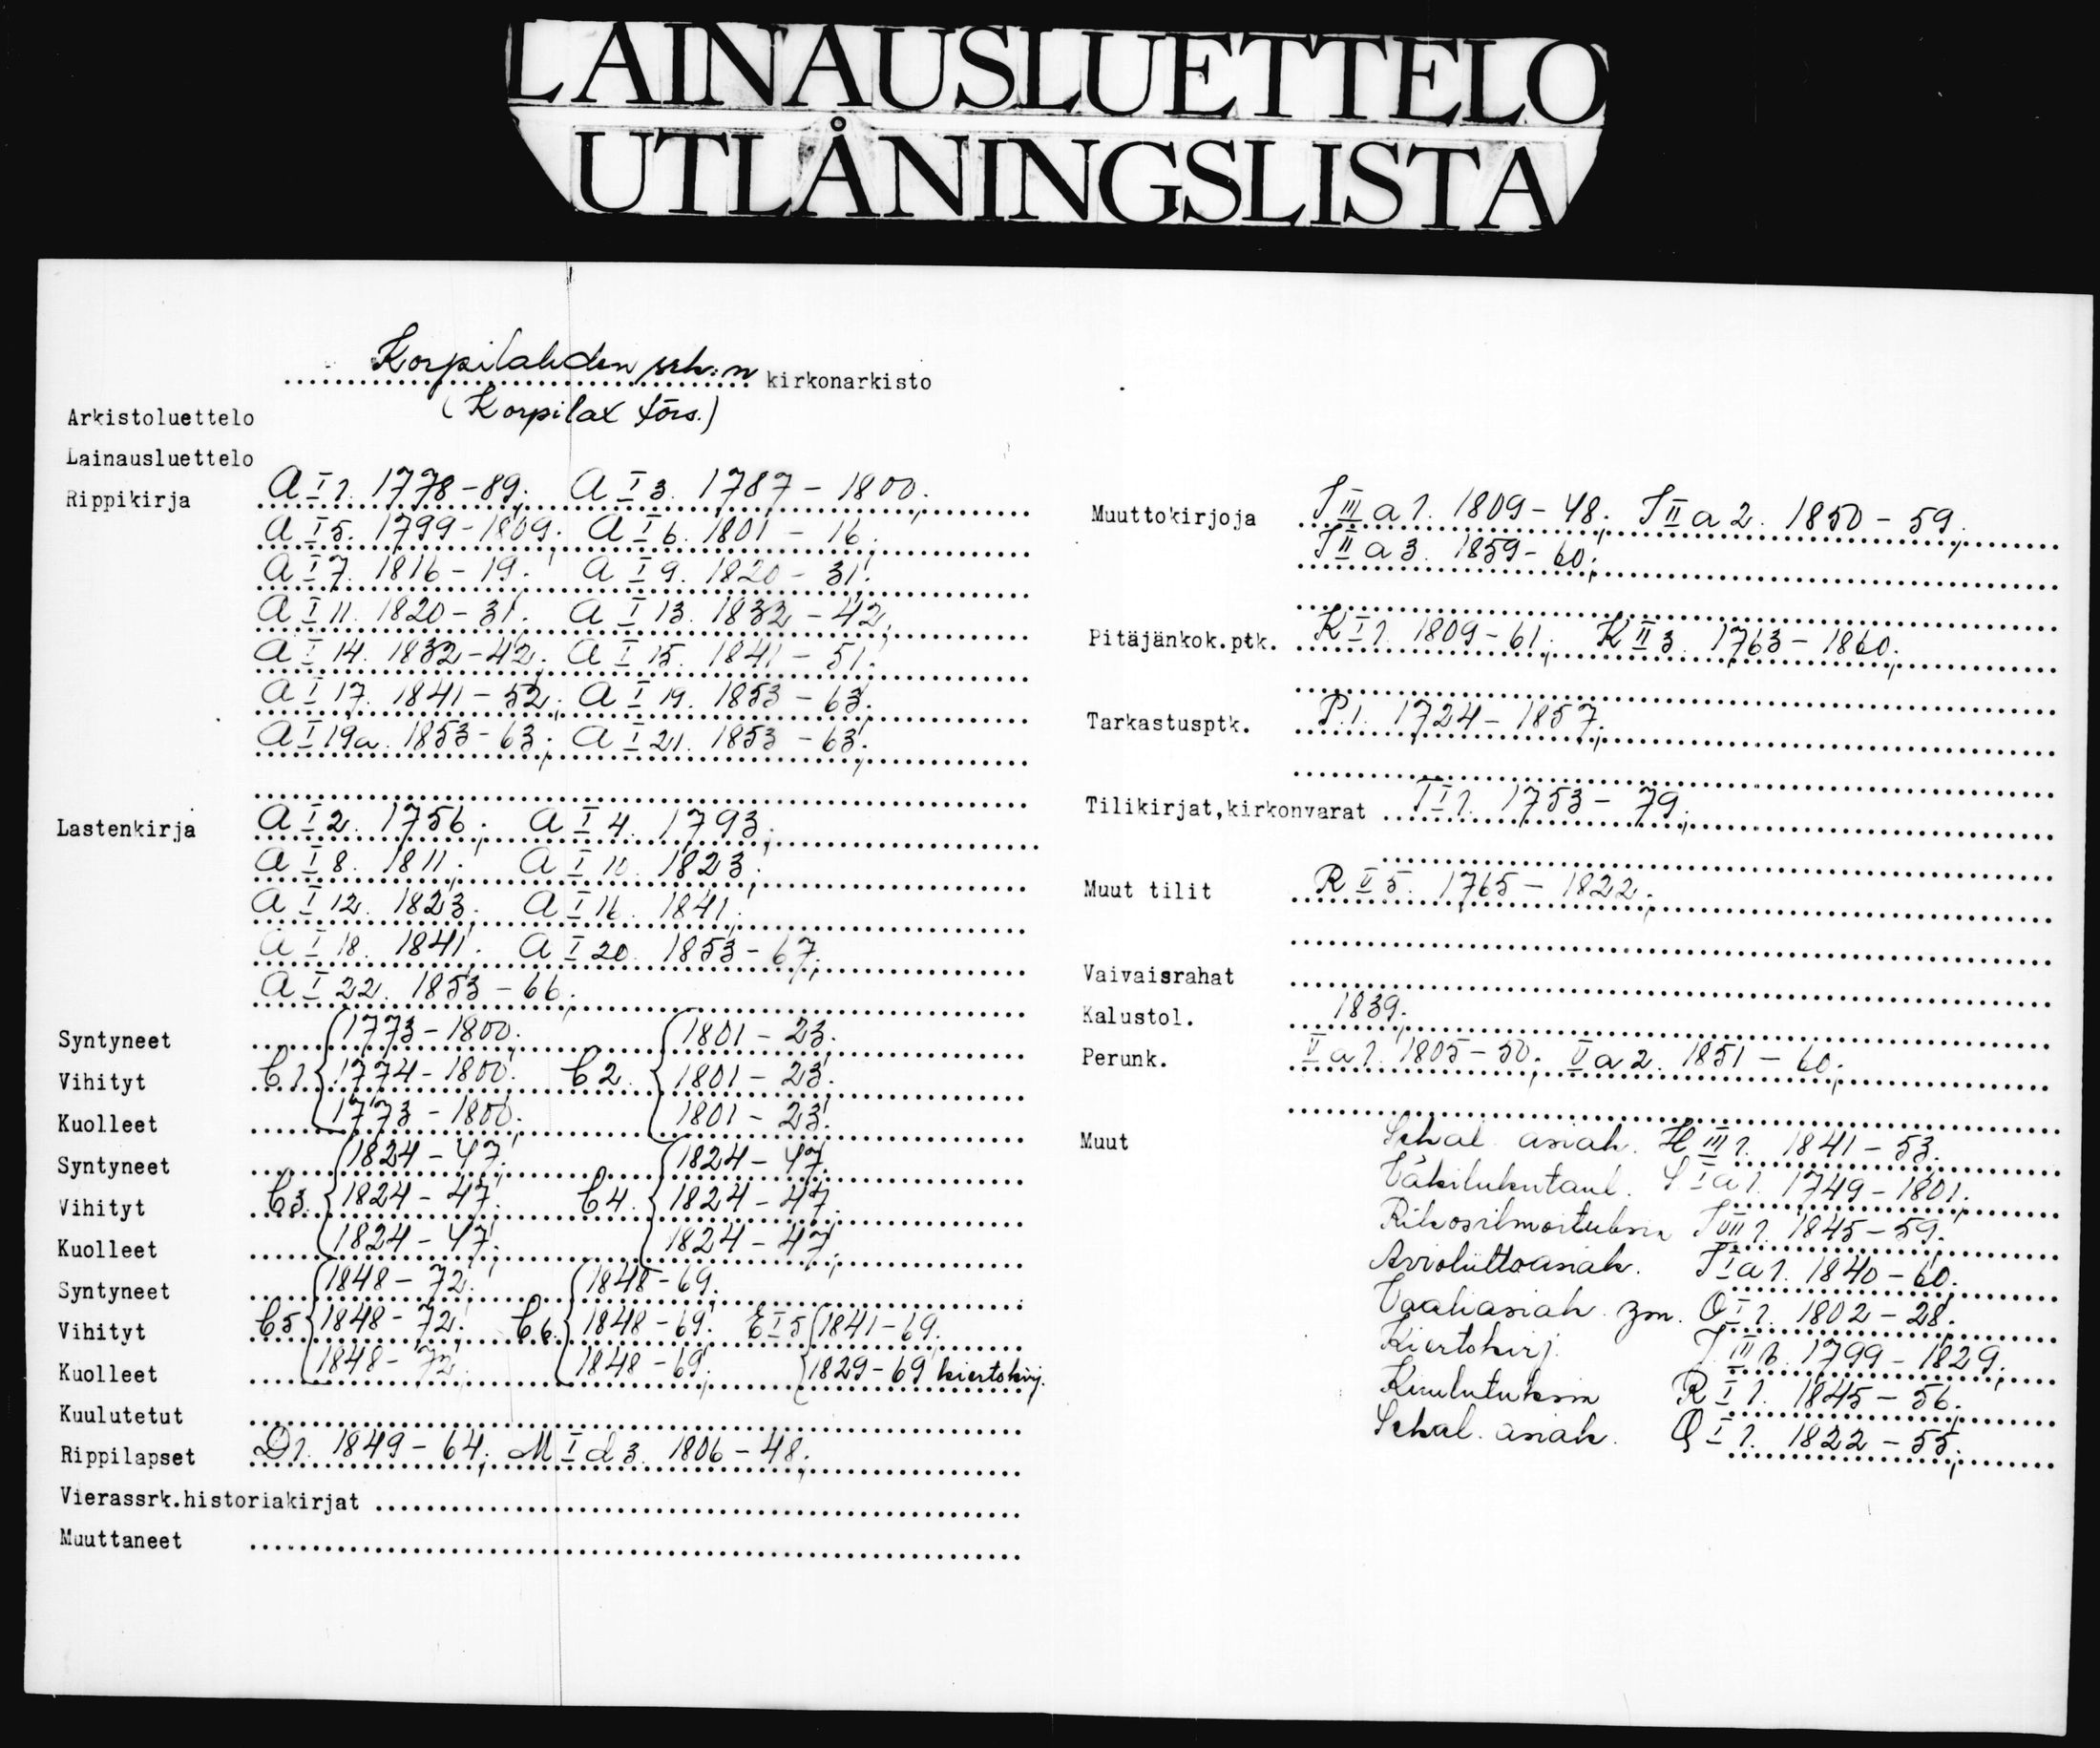 LAINAUSLUETTELO
UTLÅNINGSLISTA
Korpilahden srk:n kirkonarkisto
(Korpilax förs.)
Arkistoluettelo
Lainausluettelo
Rippikirja A I 1. 1778-89; A I 3. 1787-1800;
A I 5. 1799-1809; A I 6. 1801-16;
A I 7. 1816-19; A I 9. 1820-31;
A I 11. 1820-31; A I 13. 1832-42;
A I 14. 1832-42; A I 15. 1841-51;
A I 17. 1841-52; A I 19. 1853-63;
A I 19a. 1853-63; A I 21. 1853-63;
Lastenkirja A I 2. 1756; A I 4. 1793;
A I 8. 1811; A I 10. 1823;
A I 12. 1823; A I 16. 1841;
A I 18. 1841; A I 20. 1853-67;
A I 22. 1853-66;
Syntyneet 1773-1800; 1801-23;
Vihityt C1. 1774-1800; C2. 1801-23;
Kuolleet 1773-1800; 1801-23;
Syntyneet 1824-47; 1824-47;
Vihityt C3. 1824-47; C4. 1824-47;
Kuolleet 1824-47; 1824-47;
Syntyneet 1848-72; 1848-69;
Vihityt C5 1848-72; C6. 1848-69; E I 5 1841-69;
Kuolleet 1848-72; 1848-69; 1829-69 kiertokirj.
Kuulutetut
Rippilapset D1. 1849-64; M I d 3. 1806-48;
Vierassrk.historiakirjat
Muuttaneet
Muuttokirjoja I III a 1. 1809-48; I II a 2. 1850-59;
I II a 3. 1859-60;
Pitäjänkok.ptk. K I 1. 1809-61; K II 3. 1763-1860;
Tarkastusptk. P.1. 1724-1857;
Tilikirjat,kirkonvarat T I 1. 1753-79;
Muut tilit R II 5. 1765-1822;
Vaivaisrahat
Kalustol. 1839;
Perunk. V a 1. 1805-50; V a 2. 1851-60;
Muut Sekal. asiak. H III 1. 1841-53;
Väkilukutaul. S I a 1. 1749-1801;
Rikosilmoituksia I VII 1. 1845-59;
Avioliittoasiak. I I a 1. 1840-60;
Vaaliasiak. ym. O I 1. 1802-28;
Kiertokirj. I III b. 1799-1829;
Kuulutuksia R I 1. 1845-56;
Sekal. asiak. Q I 1. 1822-55;